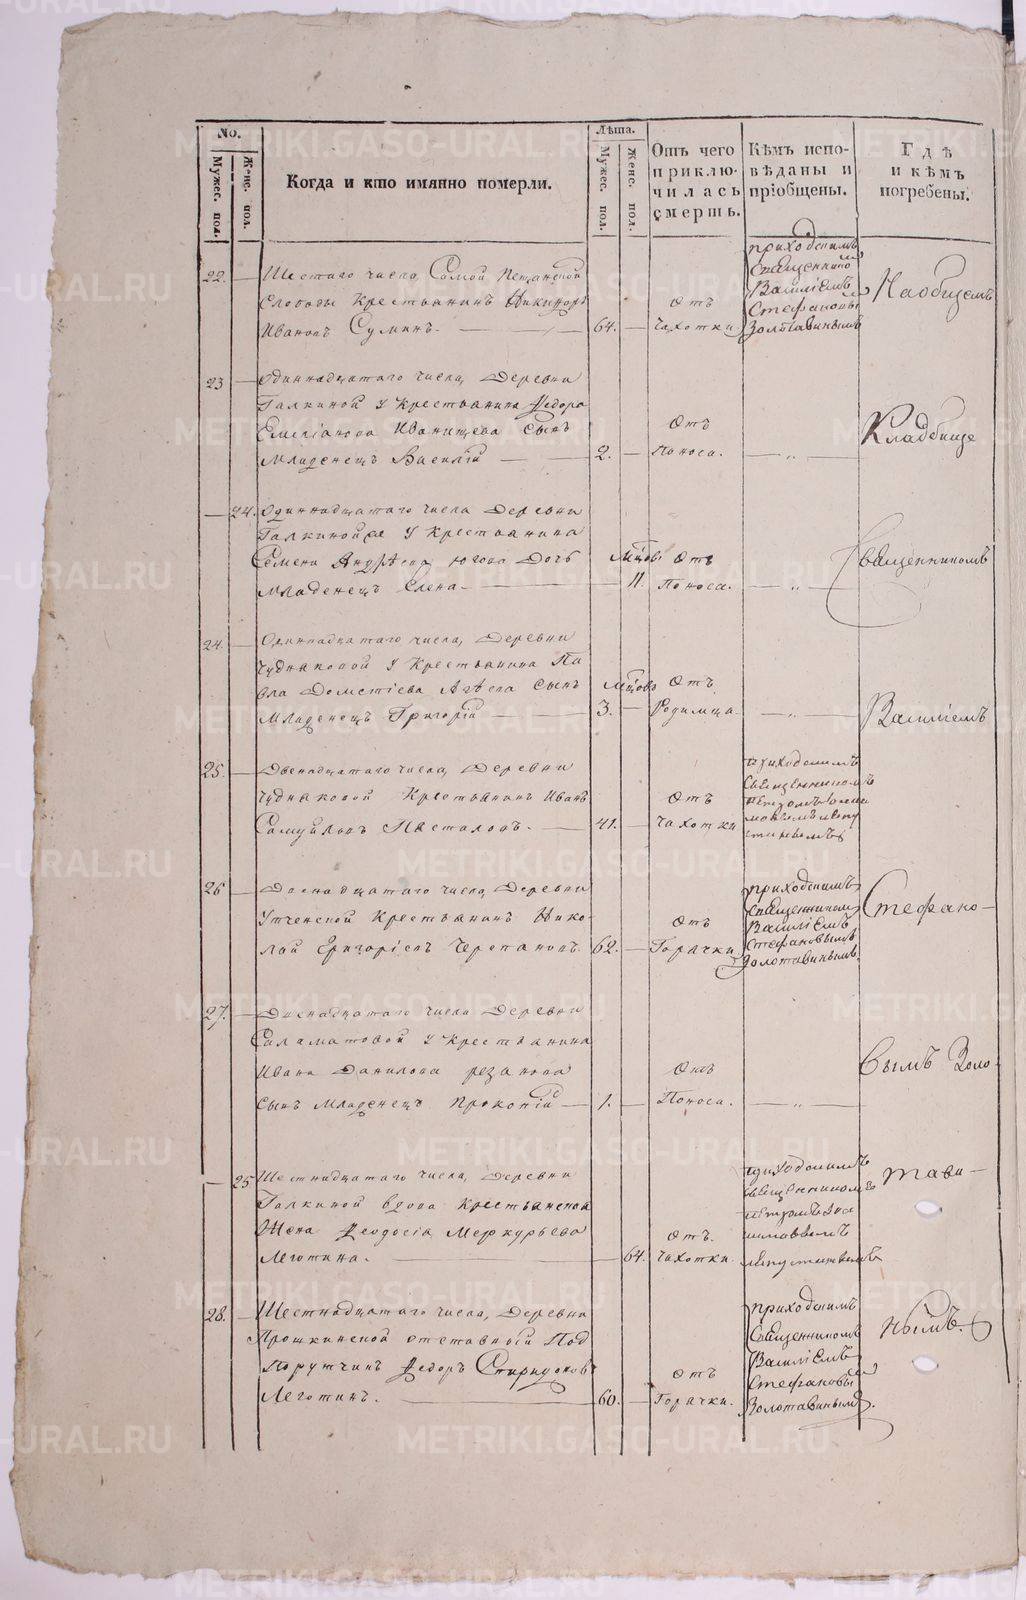 No.
Мужес. пол.
Женс. пол.
Когда и кто имянно померли.
Лѣта.
Мужес. пол.
Женс. пол.
Отъ чего приклю-
чилась
смерть.
Кѣмъ испо-
вѣданы и
пріобщены.
Гдѣ
и кѣмъ
погребены.
22. — Шестаго числа, Самой Песчанской
Слободы Крестьянинъ Никифоръ
Ивановъ Суминъ. — 64. —
Отъ
Чахотки
приходскимъ
Священнико
Василіемъ
Стефановы
Золотавинымъ
Наобщемъ
23 — Одиннадцатаго числа, Деревни
Галкиной у Крестьянина Федора
Емеліанова Иванищева Сынъ
Младенецъ Василій — 2. —
Отъ
Поноса. — „ —
Кладбище
— 24. Одиннадцатаго числа Деревни
Галкиной у Крестьянина
Семена Андрѣева Югова Дочь
Младенецъ Елена. — Мцовъ 11.
Отъ
Поноса. — „ —
Священникомъ
24. — Одиннадцатаго числа, Деревни
Чудиаковой у Крестьянина Па
вла Дометіева Агѣева Сынъ
Младенецъ Григорій — Мцовъ 3. —
Отъ
Родимца. — „ —
Василіемъ
25. — Двенадцатаго числа, Деревни
Чудиаковой Крестьянинъ Иванъ
Самуйловъ — 41. —
Отъ
Чахотки
приходскимъ
Священникомъ
Петромъ
Стефано-
26 — Двенадцатаго числа, Деревни
Утченской Крестьянинъ Нико-
лай Григоріевъ Черепановъ. 62. —
Отъ
Горячки
приходскимъ
Священникомъ
Василіемъ
Стефановымъ
Золотавинымъ.
27. — Двенадцатаго числа Деревни
Саламатовой у Крестьянина
Ивана Данилова Резанова
Сынъ Младенецъ Прокопій — 1. —
Отъ
Поноса. — „ —
вымъ Золо-
— 25 Шестнадцатаго числа, Деревни
Галкиной вдова Крестьянская
Жена Феодосія Меркурьева
Леготина. — 64.
Отъ
Чахотки.
приходскимъ
Священникомъ
Петромъ
тави-
28. — Шестнадцатаго числа, Деревни
Ярошкинской отставной Под
Поручикъ Федоръ Спиридоновъ
Леготинъ. — 60. —
Отъ
Горячки.
приходскимъ
Священникомъ
Василіемъ
Стефановы
Золотавинымъ.
нымъ.
METRIKI.GASO-URAL.RU